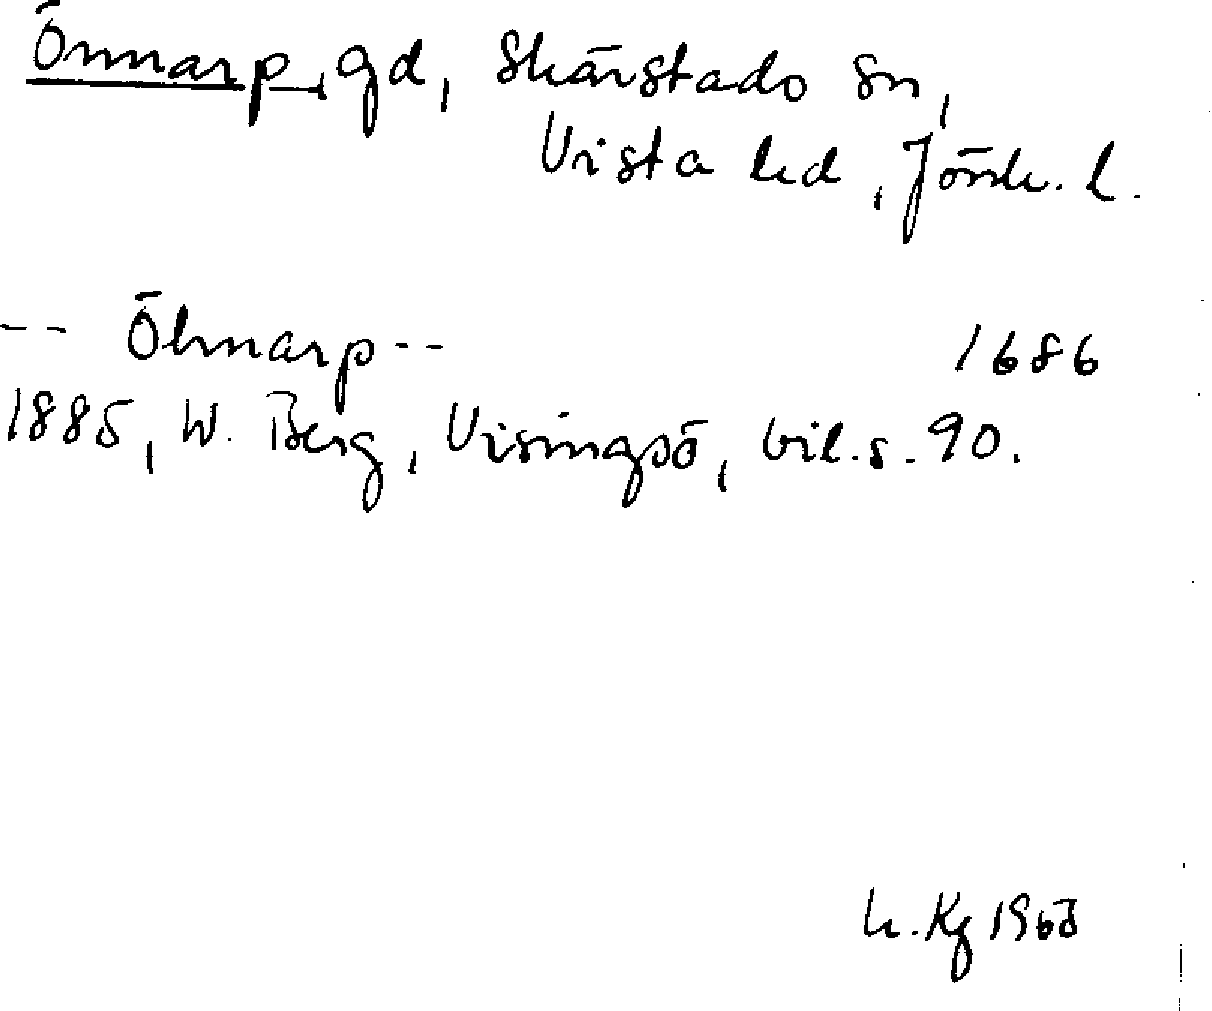 Önnarp, gd, Skärstads sn,
Vista hd, Jönk. l.
-- Ölmarp -- 1686
1885, W. Berg, Visingsö, bil. s. 90.
h. Kg 1963